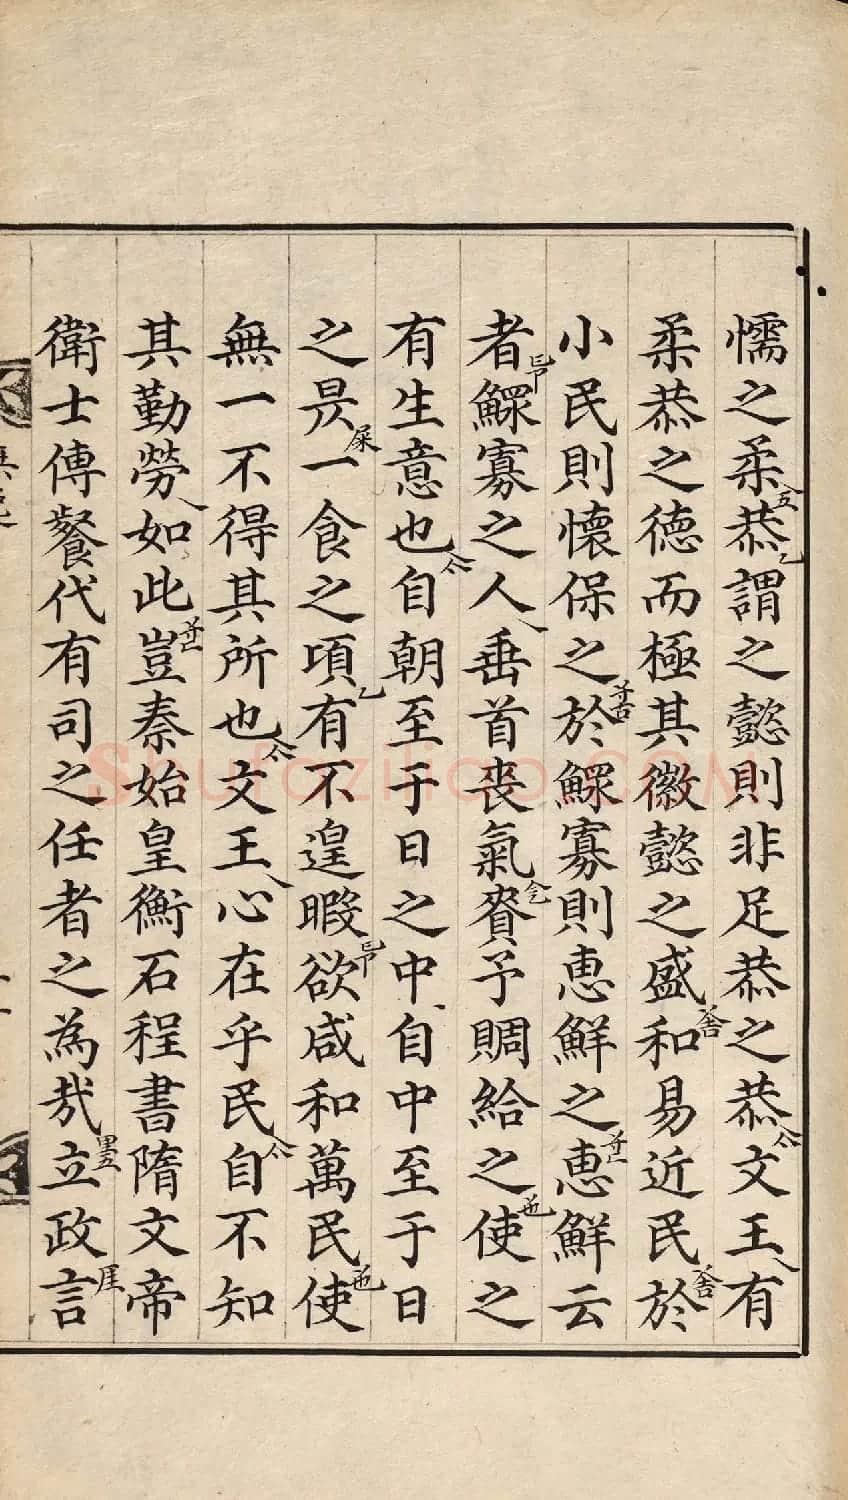 懦之柔恭謂之懿則非足恭之恭文王有
柔恭之德而極其徽懿之盛和易近民於
小民則懷保之於鰥寡則惠鮮之惠鮮云
者鰥寡之人垂首喪氣賚予賙給之使之
有生意也自朝至于日之中自中至于日
之昃一食之頃有不遑暇欲咸和萬民使
無一不得其所也文王心在乎民自不知
其勤勞如此豈秦始皇衡石程書隋文帝
衛士傳餐代有司之任者之為哉立政言
Shufaziliao.COM